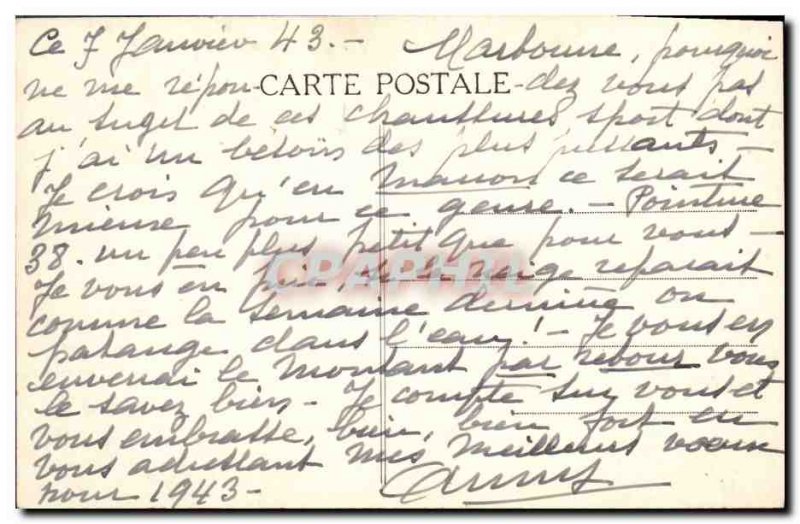 Ce 7 Janvier 43. - Ma bonne, pourquoi
ne me répon- CARTE POSTALE -dez vous pas
au sujet de ces chaussures sport dont
j'ai un besoin des plus pressants -
Je crois qu'en marron ce serait
mieux pour ce genre. - Pointure
38. un peu plus petit que pour vous -
Je vous en prie, si la neige reparait
comme la semaine dernière on
patauge dans l'eau! - Je vous en
enverrai le montant par retour vous
le savez bien - Je compte sur vous et
vous embrasse, bien, bien fort en
vous adressant mes meilleurs voeux
pour 1943 -
CPAPHIL